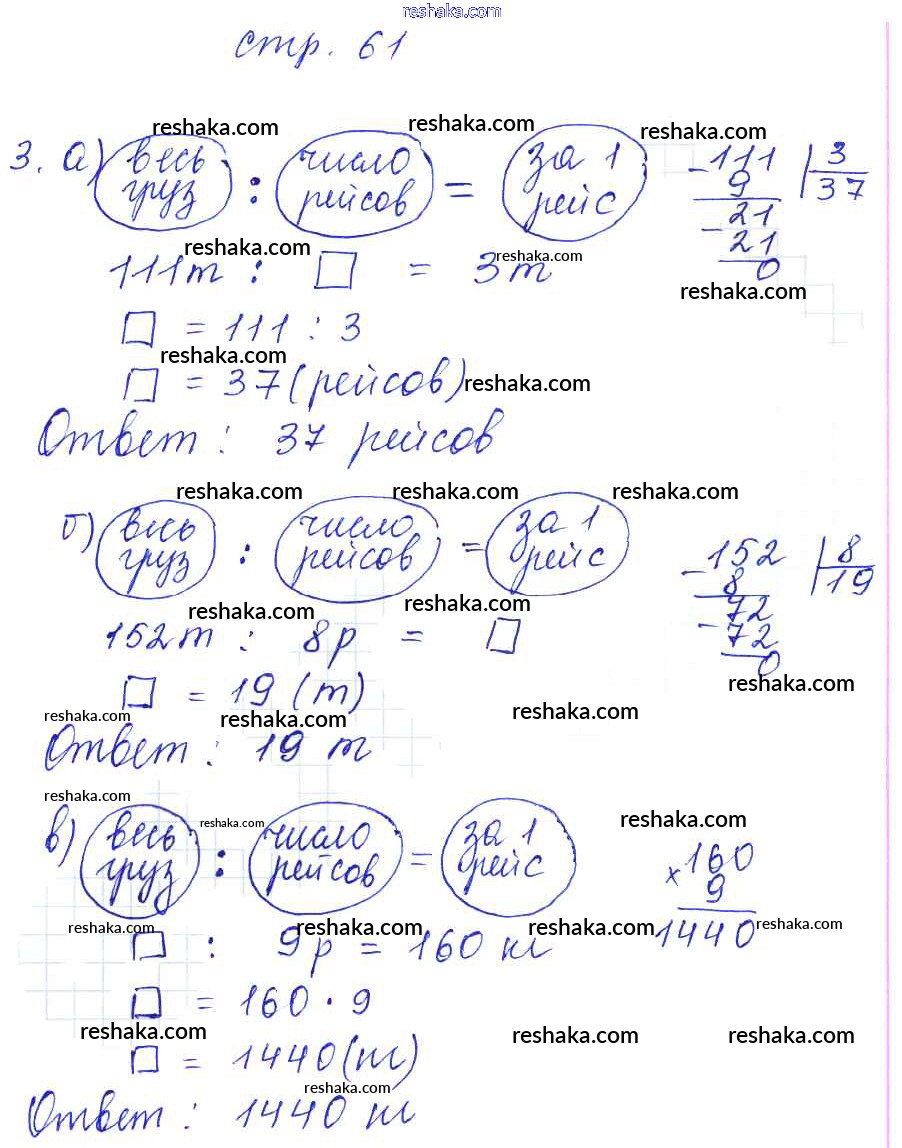 reshaka.com
стр. 61
reshaka.com reshaka.com reshaka.com
3. а) весь груз : число рейсов = за 1 рейс
111 | 3
9 37
21
21
0
reshaka.com reshaka.com
111т : □ = 3т
reshaka.com
□ = 111 : 3
reshaka.com
□ = 37 (рейсов) reshaka.com
Ответ : 37 рейсов
reshaka.com reshaka.com reshaka.com
б) весь груз : число рейсов = за 1 рейс
- 152 | 8
8 19
- 72
72
0
reshaka.com reshaka.com
152т : 8р = □
reshaka.com
□ = 19 (т)
reshaka.com reshaka.com reshaka.com
Ответ : 19 т
reshaka.com
reshaka.com reshaka.com
в) весь груз : число рейсов = за 1 рейс
× 160
9
1440
reshaka.com reshaka.com reshaka.com reshaka.com
□ : 9р = 160 кг
□ = 160 · 9
reshaka.com reshaka.com reshaka.com
□ = 1440 (кг)
reshaka.com
Ответ : 1440 кг